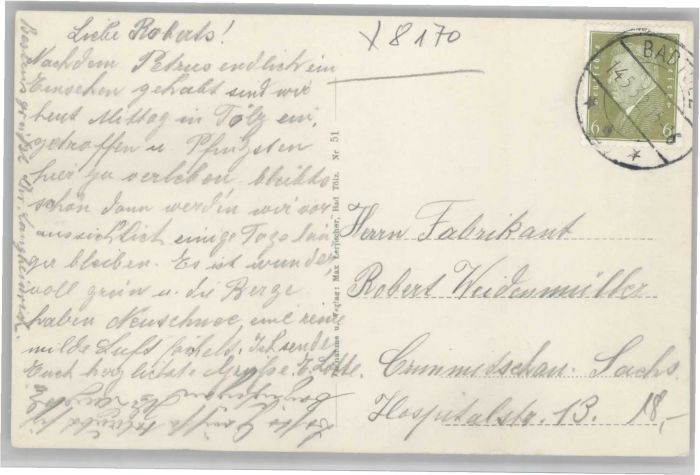 Liebe Roberts!
Nachdem Petrus endlich ein
Einsehen gehabt sind wir
heut Mittag in Tölz ein,
getroffen u. Pfingsten
hier zu verleben. bleibts
schön dann werden wir vor
aussichtlich einige Tage län
ger bleiben. Es ist wunder
voll grün u. die Berge
haben Neuschnee eine reine
milde Luft Ich sende
Euch herzlichste Grüße E. Lotte.
X 8170
BAD TÖLZ
6 6
Verlag: Max Bad Tölz. Nr 51
Herrn Fabrikant
Robert Weidenmüller
Crimmidschau. Sachs.
Hospitalstr. 13.
18,-